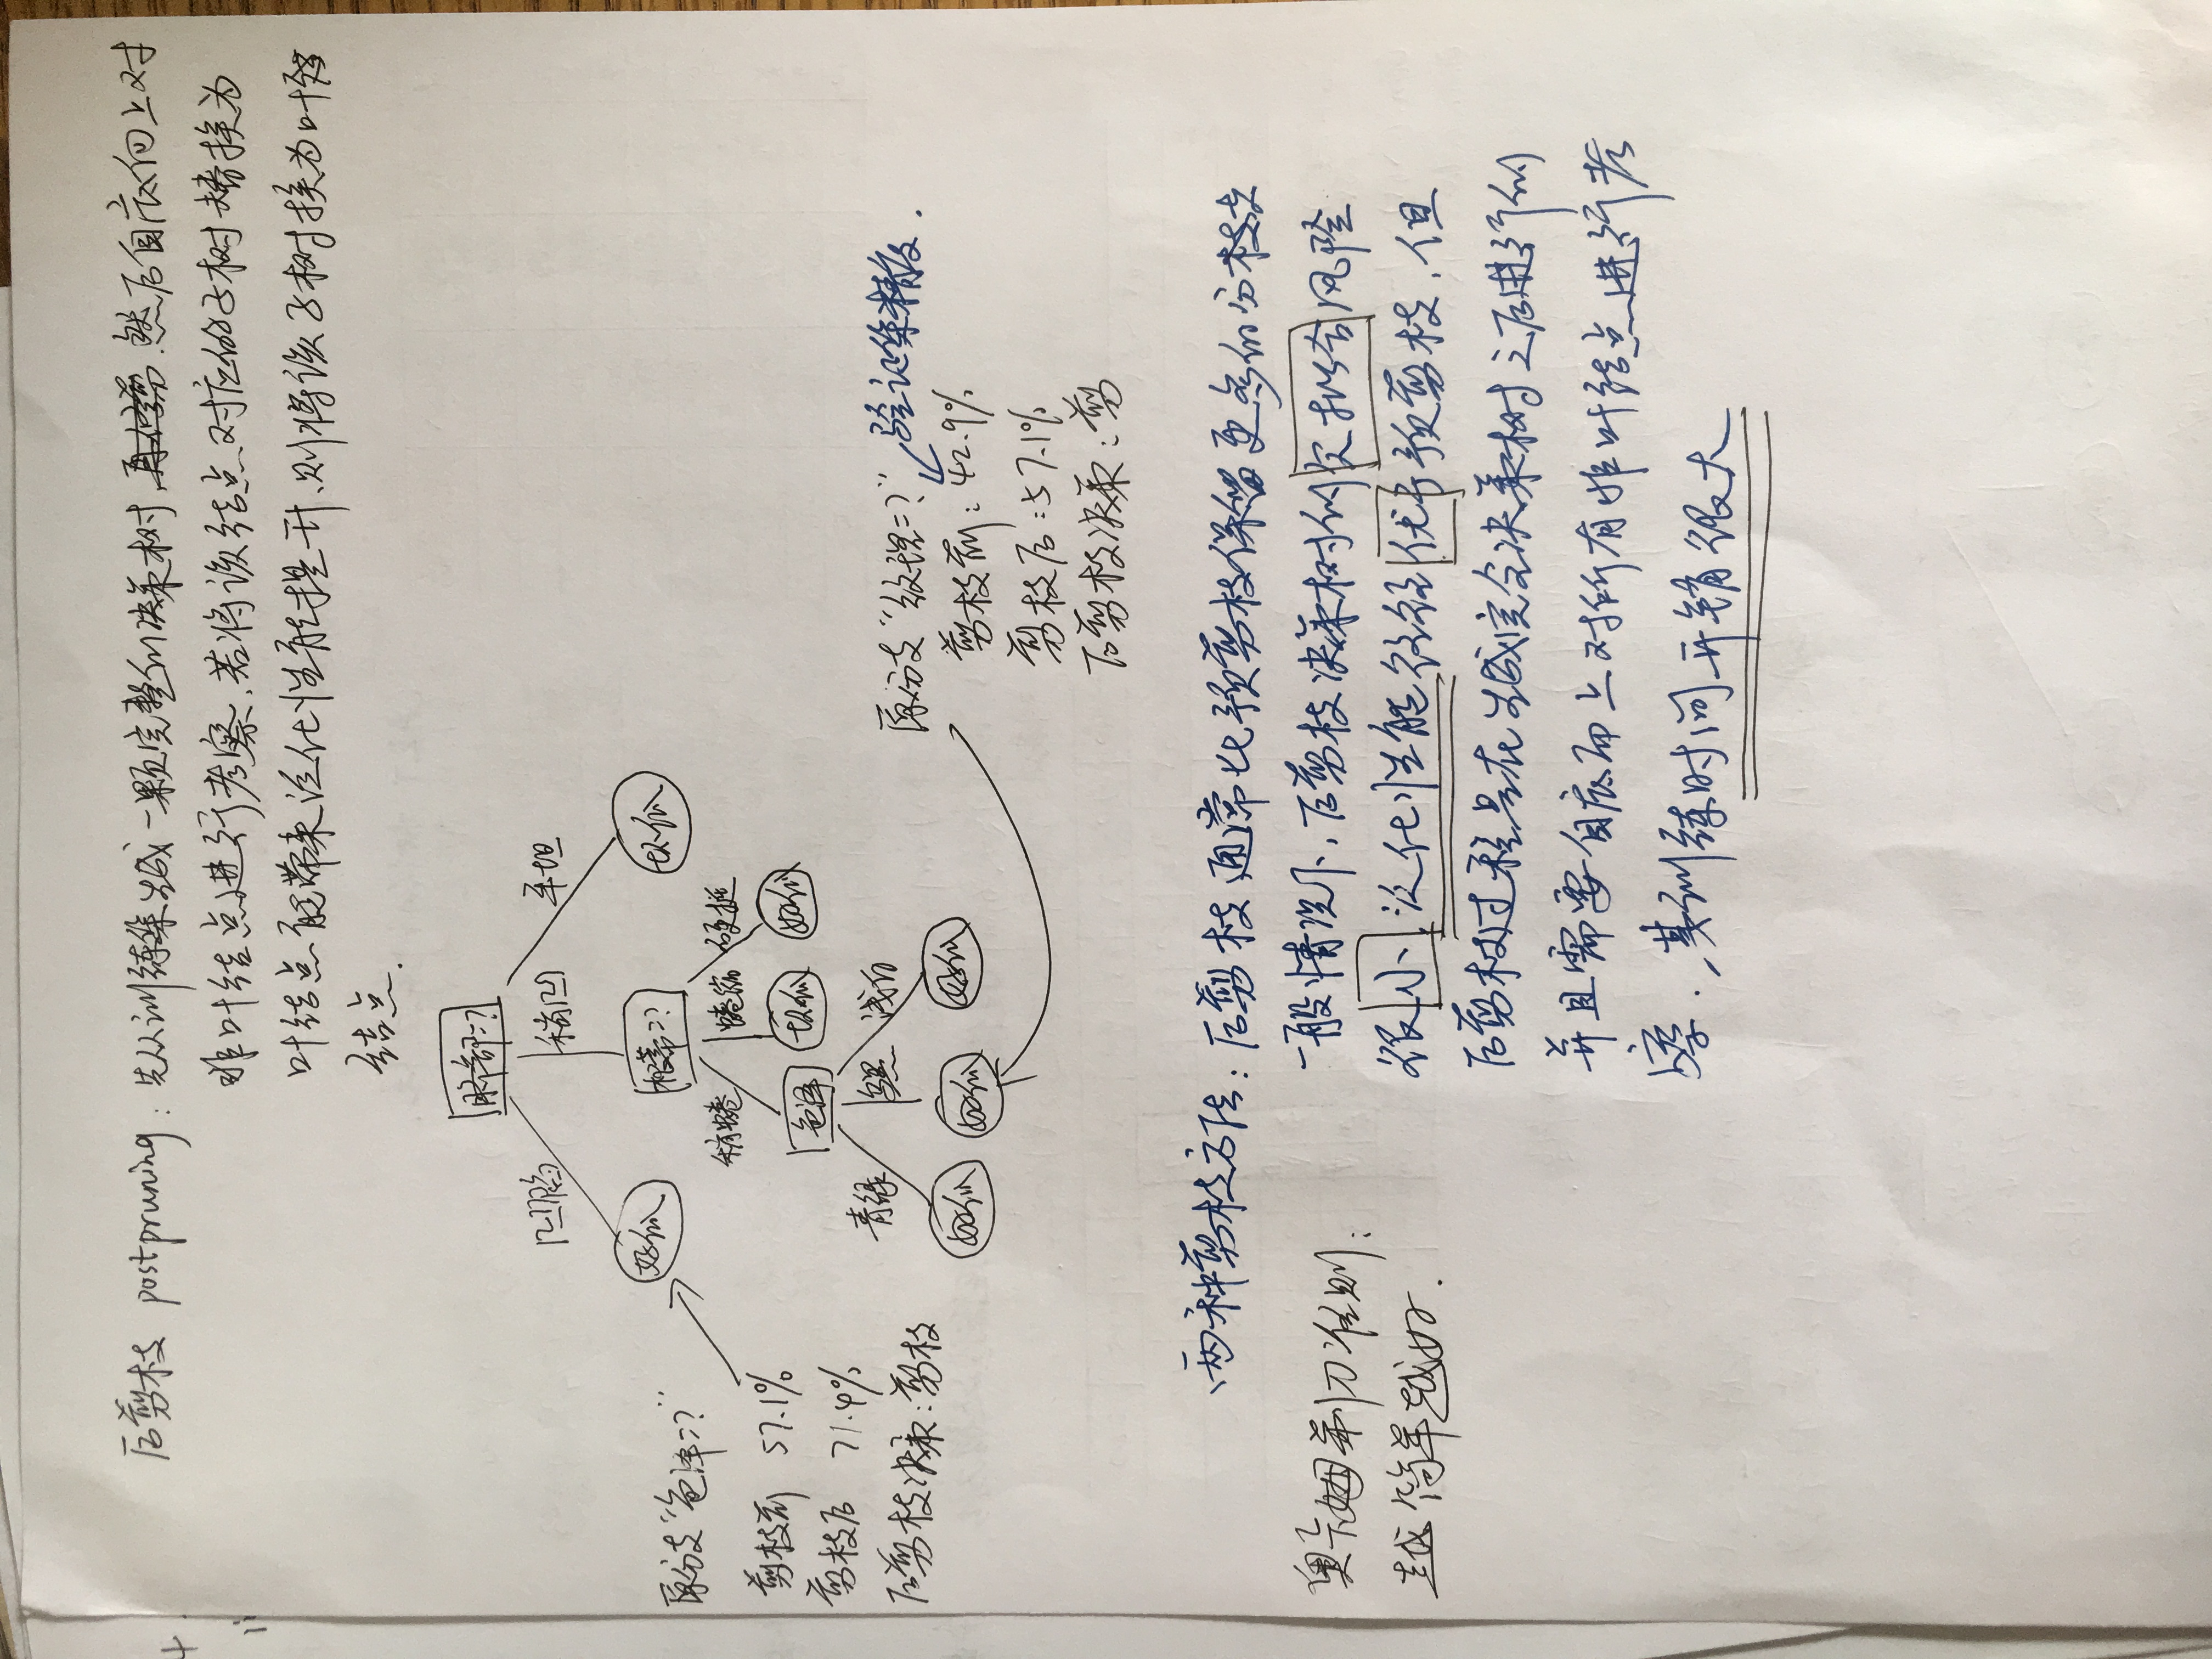 后剪枝 postpruning: 先从训练集生成一颗完整的决策树,然后自底向上对
非叶结点进行考察,若将该结点对应的子树替换为
叶结点能带来泛化性能提升,则将该子树换为叶
结点.
脐部=?
凹陷 稍凹 平坦
好瓜 根蒂=? 坏瓜
原分支“色泽=?”
剪枝前 57.1%
剪枝后 71.4%
后剪枝决策:剪枝
稍蜷 蜷缩 硬挺
色泽 坏瓜 好瓜
青绿 乌黑 浅白
好瓜 好瓜 好瓜
原分支“纹理=?” 验证集精度.
剪枝前:42.9%
剪枝后:57.1%
后剪枝决策:剪
两种剪枝方法:后剪枝通常比预剪枝保留更多的分枝
一般情况下,后剪枝决策树的欠拟合风险
很小,泛化性能往往优于预剪枝,但
后剪枝过程是在生成完全决策树之后进行的
并且需要自底而上对所有非叶结点进行考
察.其训练时间开销很大
奥卡姆剃刀准则:
越简单越好.